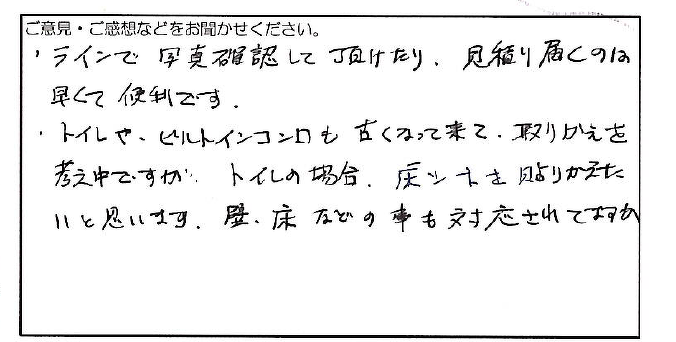 ご意見・ご感想などをお聞かせください。
・ラインで写真確認して頂けたり、見積り届くのは
早くて便利です。
・トイレや、ビルトインコンロも古くなって来て、取りかえを
考え中ですが、トイレの場合、床シートを貼りかえた
いと思います。壁、床などの事も対応されてますか